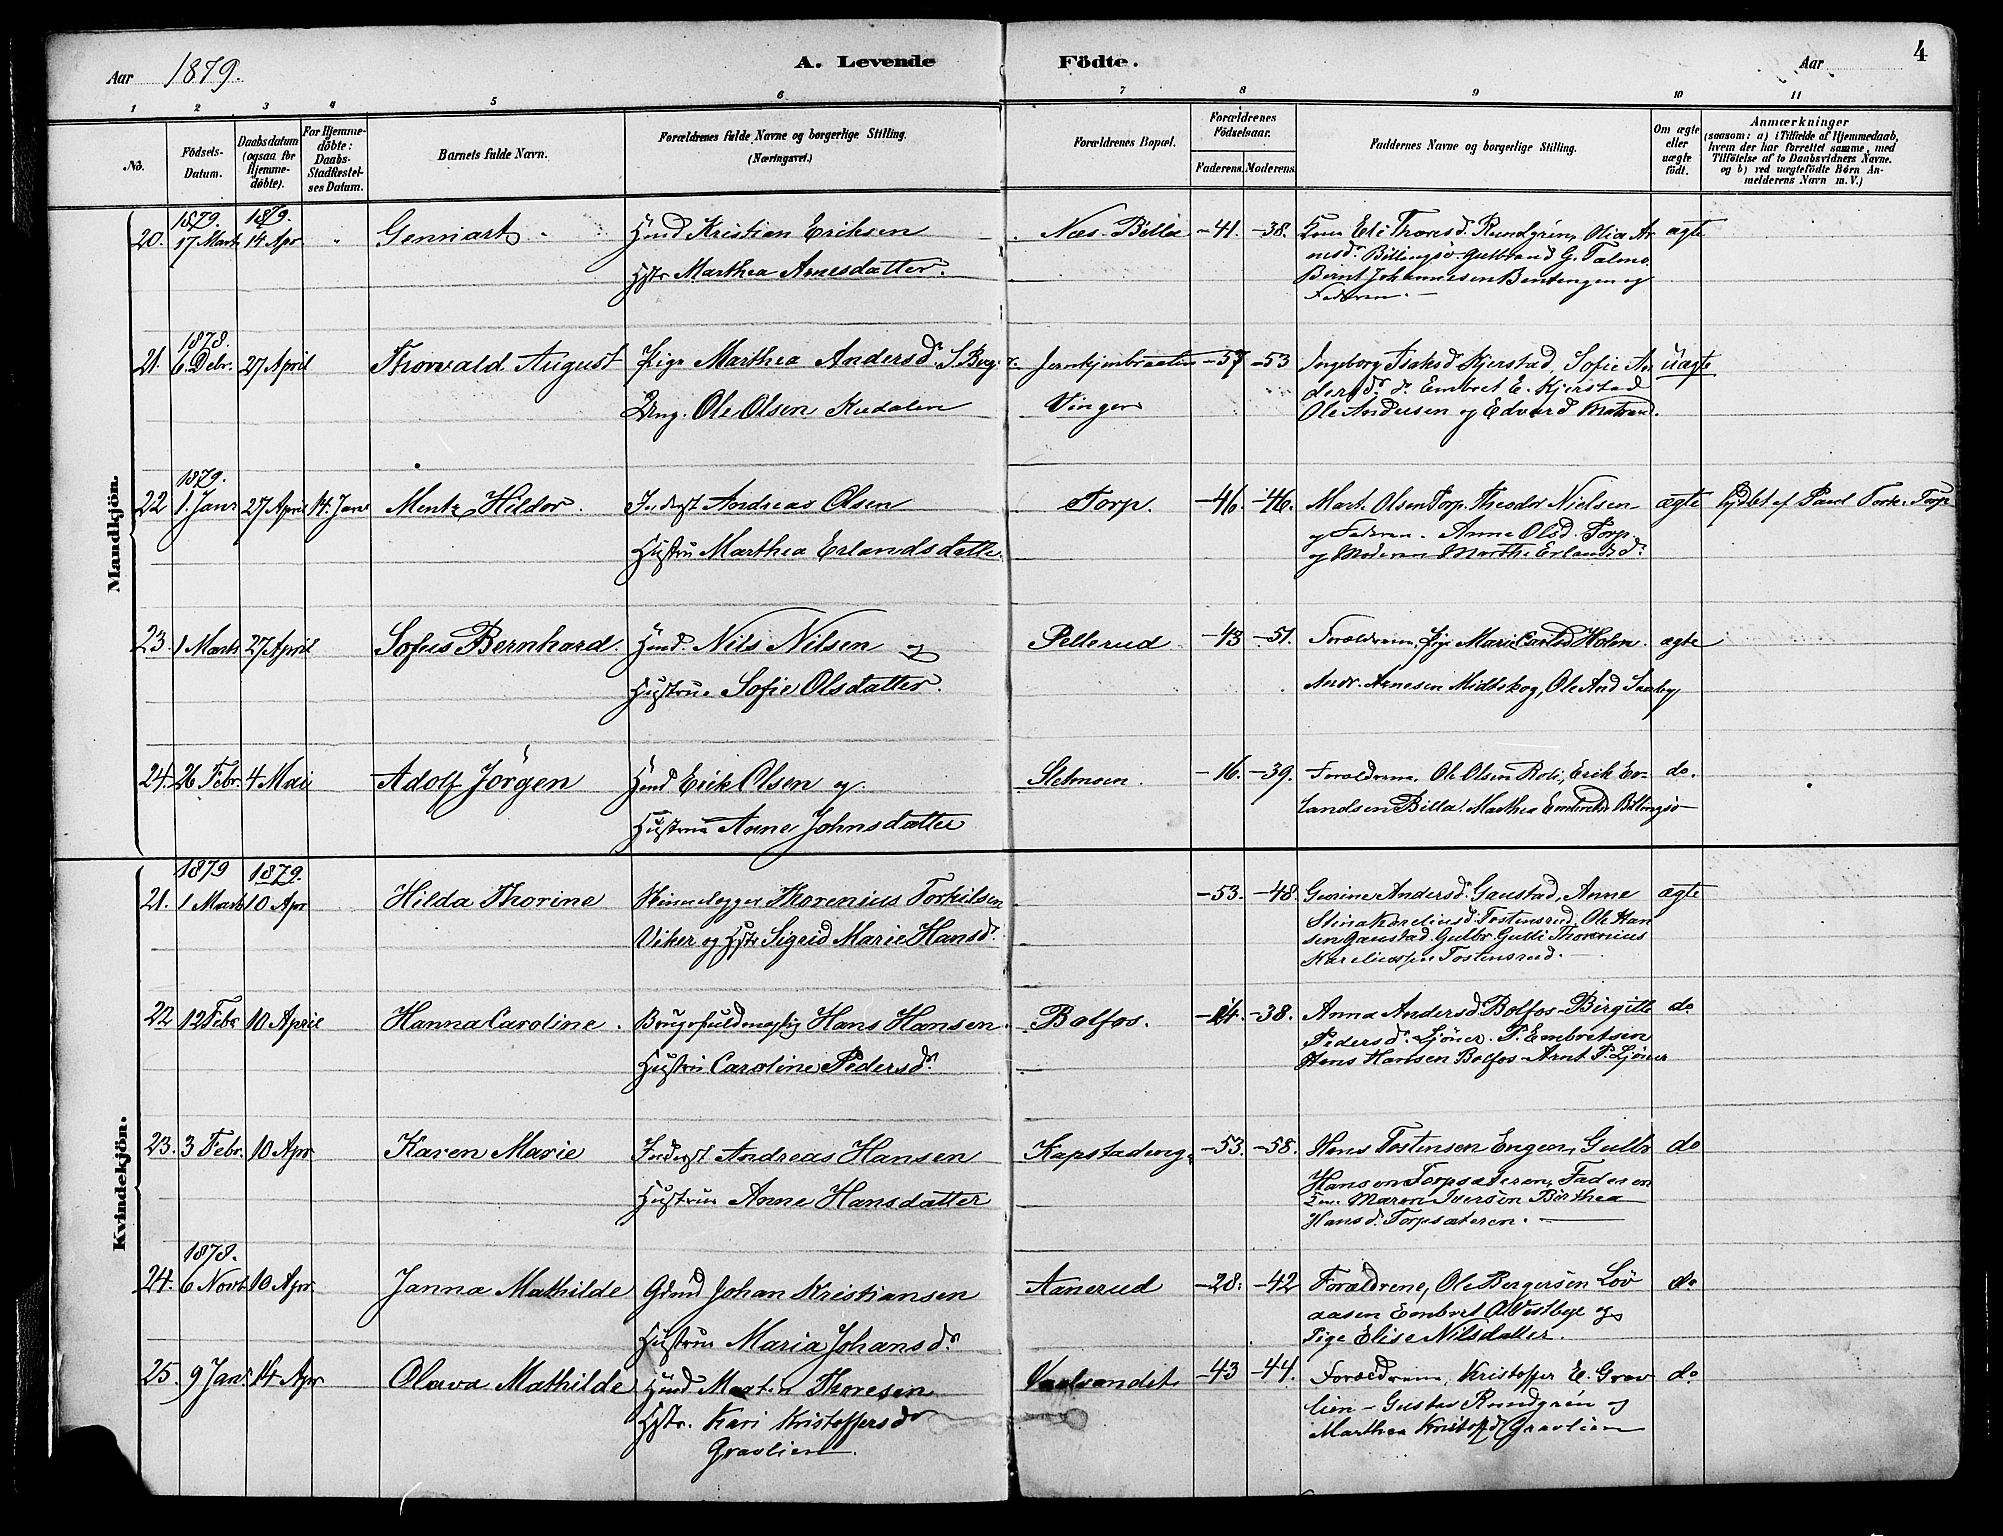 Aar 1879.
A. Levende Födte.
Aar
4
1 2 3 4 5 6 7 8 9 10 11
No.
Födsels-Datum.
Daabsdatum (ogsaa for Hjemmedöbte).
For Hjemmedöbte: Daabs-Stadfæstelses Datum.
Barnets fulde Navn.
Forældrenes fulde Navne og borgerlige Stilling. (Næringsvei.)
Forældrenes Bopæl.
Forældrenes Födselsaar.
Faderens. Moderens.
Faddernes Navne og borgerlige Stilling.
Om ægte eller uægte födt.
Anmærkninger
(saasom: a) i Tilfælde af Hjemmedaab, hvem der har forrettet samme, med Tilföielse af to Daabsvidners Navne. og b) ved uægtefödte Börn Anmelderens Navn m. V.)
Mandkjön.
1879. 1879.
20. 17 Marts 14 Apr " Gennart Hmd Kristian Eriksen Næs-Billa -41. -38. Eli Thoresd. Rundgrin, Olia Ar ægte
Hstr Marthea Arnesdatter. nesdr. Billingsö Gulbrand G. Talmo
Bernt Johannesen Bentengen og
Faderen.
1878.
21. 6 Debr. 27 April Thorvald August Pige Marthea Andersdr. S. Berg Jernkjenbraaten -57 -53 Ingeborg Isaksd Kjerstad, Sofie An uægte
Ung. Ole Olsen Kudalen Vinger dersdr. do Embret E. Kjerstad
Ole Andersen og Edvard Matrand.
1879.
22 1 Janr 27 April 14 Janr Mentz Hildor. Inderst Andreas Olsen Torp. -46. -46. Mart. Olsen Torp. Theodor Nielsen ægte Paul Tork. Torp
Hustru Marthea Erlandsdatter og Faderen. Anne Olsd. Torp
og Moderen Marthe Erlandsdr.
23. 1 Marts 27 April Sofus Bernhard. Hmd. Nils Nilsen og Pellerud -43 -51. Forældrene, Pige Marie Carlsd Holen ægte
Hustrue Sofie Olsdatter. Andr. Arnesen Midtskog, Ole And
24. 26 Febr. 4 Mai Adolf Jörgen Hmd Erik Olsen og Sletmoen. -16. -39. Forældrene, Ole Olsen Roli, Erik Er- do.
Hustrue Anne Johnsdatter landsen Billa. Marthea Embretsd. Billingsö
Kvindekjön.
1879 1879.
21. 1 Marts 10 Apr Hilda Thorine Thorenius Torkilsen -53. -48. Gurine Andersdr. Gaustad, Anne ægte
Viker og Hstr Sigrid Marie Hansdr. Stina Kareliusd. Tostensrud. Ole Han
sen Gaustad. Gulbr. Gulli Thorenius
Kareliussen Tostensrud.
22 12 Febr 10 April Hanna Caroline. Brugsfuldmægtig Hans Hansen. Bolfos. -38. Anna Andersd Bolfos- Birgitte do
Hustru Caroline Pedersdr. Pedersdr. Ljöner. P. Embretsen
Hans Hansen Bolfos- Arnt P. Ljöner
23. 3 Febr. 10 Apr Karen Marie Inderst Andreas Hansen Kapstadeng -53. -58. Hans Tostensen Engen, Gulbr do
Hustrue Anne Hansdatter Hansen Torpsæteren, Faderen
Maren Iversen Berthea
Hansd. Torpsæteren.
1878.
24. 6 Novb. 10 Apr. Janna Mathilde Gdmd Johan Kristiansen Aanerud -28: -42 Forældrene, Ole Bergersen Löv do
Hustrue Maria Johansdr. aasen Embret O. Vestbye og
Pige Elise Nilsdatter.
25. 9 Janr 14 Apr Olava Mathilde Hmd Martin Thoresen -43 -44. Forældrene, Kristoffer E. Grav do
Hstr. Kari Kristoffersdr. lien- Gustav Rundgrén og
Gravlien. Marthea Kristoffd Gravlien